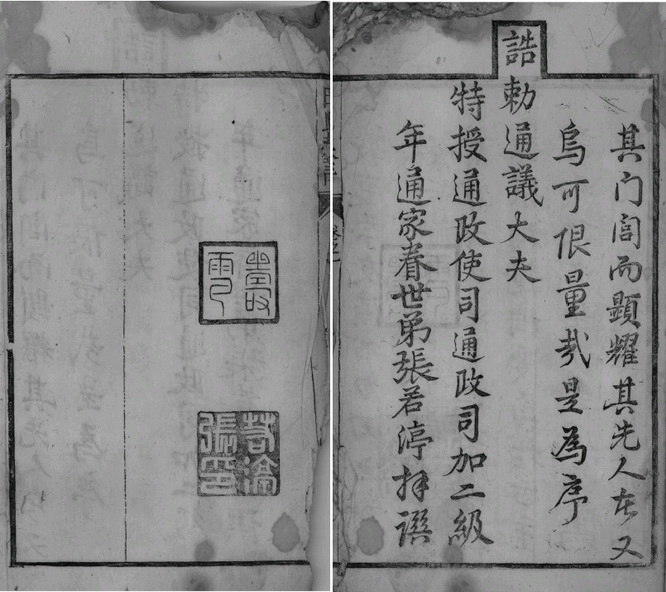 其门閭而顯耀其先人者又
烏可限量哉是為序
誥勅通議大夫
特授通政使司通政司加二級
年通家眷世弟張若渟拜譔